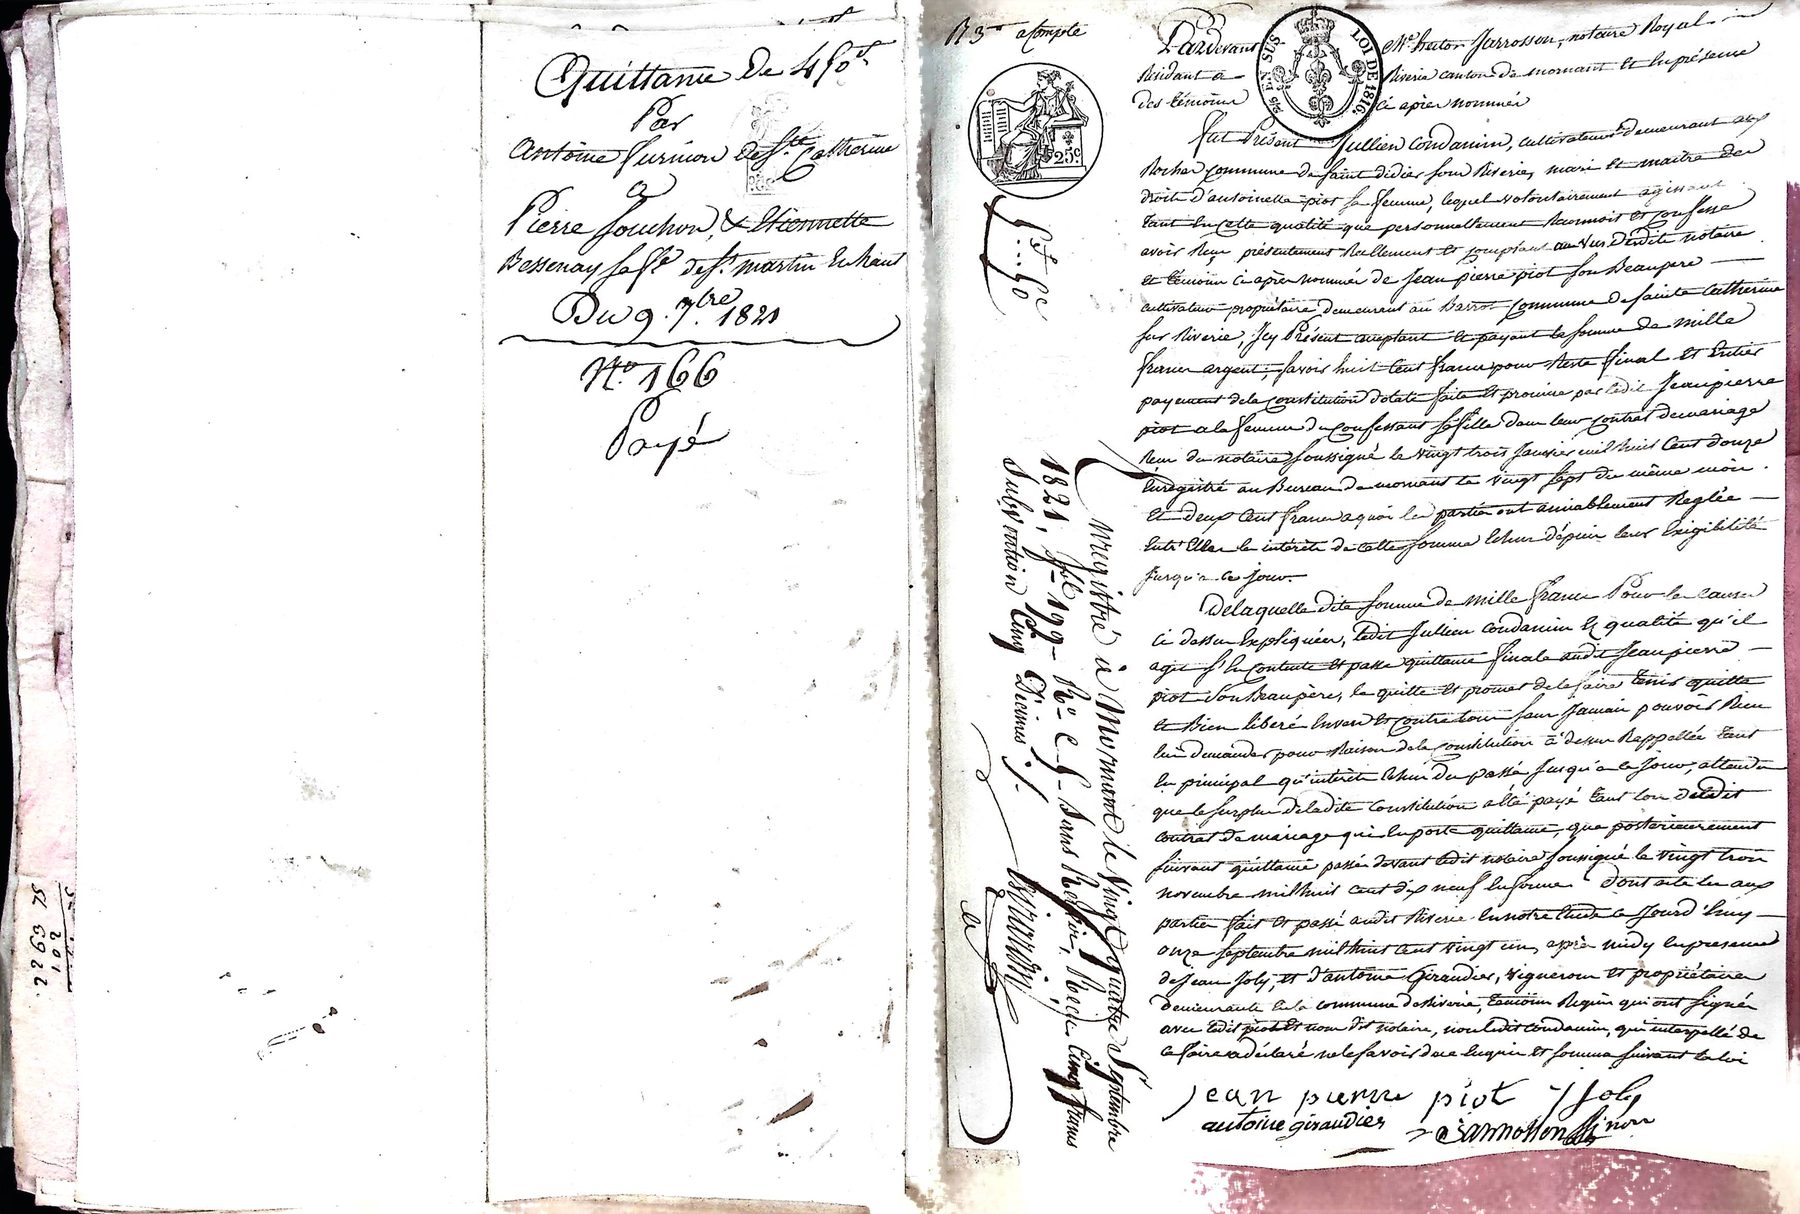 Quittance de 450 f.
Par
Antoine Furnion de Ste Catherine
a
Pierre Souchon, & Etiennette
Bessenay sa fe de St martin En haut
Du 9. 7bre 1821
No. 166
Payé
201
2269
R 3 acompte
Pardevant Me hector Jarrosson, notaire Royal
Résidant a Riverie canton de mornant et En présence
des témoins ci après nommés
25c
5 f 50 c
LOI DE 1816
EN SUS
Fut Présent Jullien Condamin, cultivateur demeurant au
Rocher commune de saint didier sous Riverie, mari et maitre des
droits d'antoinette piot sa femme, lequel volontairement agissant
tant En cette qualité que personnellement Reconnoit et Confesse
avoir Reçu présentement Réellement et comptant au Vu desdits notaire
et témoins ci après nommés de Jean pierre piot son Beaupere
cultivateur propriétaire demeurant au Barrot commune de sainte Catherine
sur Riverie, Icy Présent acceptant et payant la somme de mille
francs argent, savoir huit Cent francs pour Reste final et Entier
payement de la Constitution dotale faite et promise par ledit Jean pierre
piot a la femme du Confessant sa fille dans leur contrat de mariage
Reçu du notaire soussigné le vingt trois Janvier mil huit Cent douze
Enregistré au Bureau de mornant le vingt sept du même mois.
et deux Cent francs a quoi les parties ont amiablement Réglée
Entr'Elles les intérets de cette somme Echus depuis leur Exigibilité
Jusqu'a ce jour.
De laquelle dite somme de mille francs Pour les causes
ci dessus Expliquées, ledit Jullien condamin Es qualité qu'il
agit s'En contente et passe quittance finale audit Jean pierre
piot son Beaupère, le quitte et promet de le faire tenir quitte
et Bien libéré Envers et contre tous sans Jamais pouvoir Rien
lui demander pour Raison de la constitution a dessus Rappellée tant
En principal qu'intérets Echus du passé Jusqu'a ce Jour, attendu
que le surplus de la dite constitution a été payé tant lors dudit
contrat de mariage qui En porte quittance, que postérieurement
suivant quittance passée devant ledit notaire soussigné le vingt trois
novembre mil huit cent dix neuf En forme dont acte lu aux
parties fait et passé audit Riverie En notre Etude ce Jourd'huy
onze septembre mil huit Cent vingt un, après midy En présence
de Jean Joly, et d'antoine Giraudier, vigneron et propriétaire
demeurants En la commune de Riverie, témoins Requis qui ont signé
avec ledit piot et nous dit notaire, non ledit condamin, qui interpellé de
ce faire a déclaré ne le savoir de ce Enquis et sommé suivant la loi
Jean pierre piot J Joly
antoine giraudier Jarrosson
Enregistré à Mornant le Vingt quatre Septembre
1821, fol 199 Ro C 5 Sans Renvoi, Reçu Cinq francs
Subvention Cinq Décimes ./.